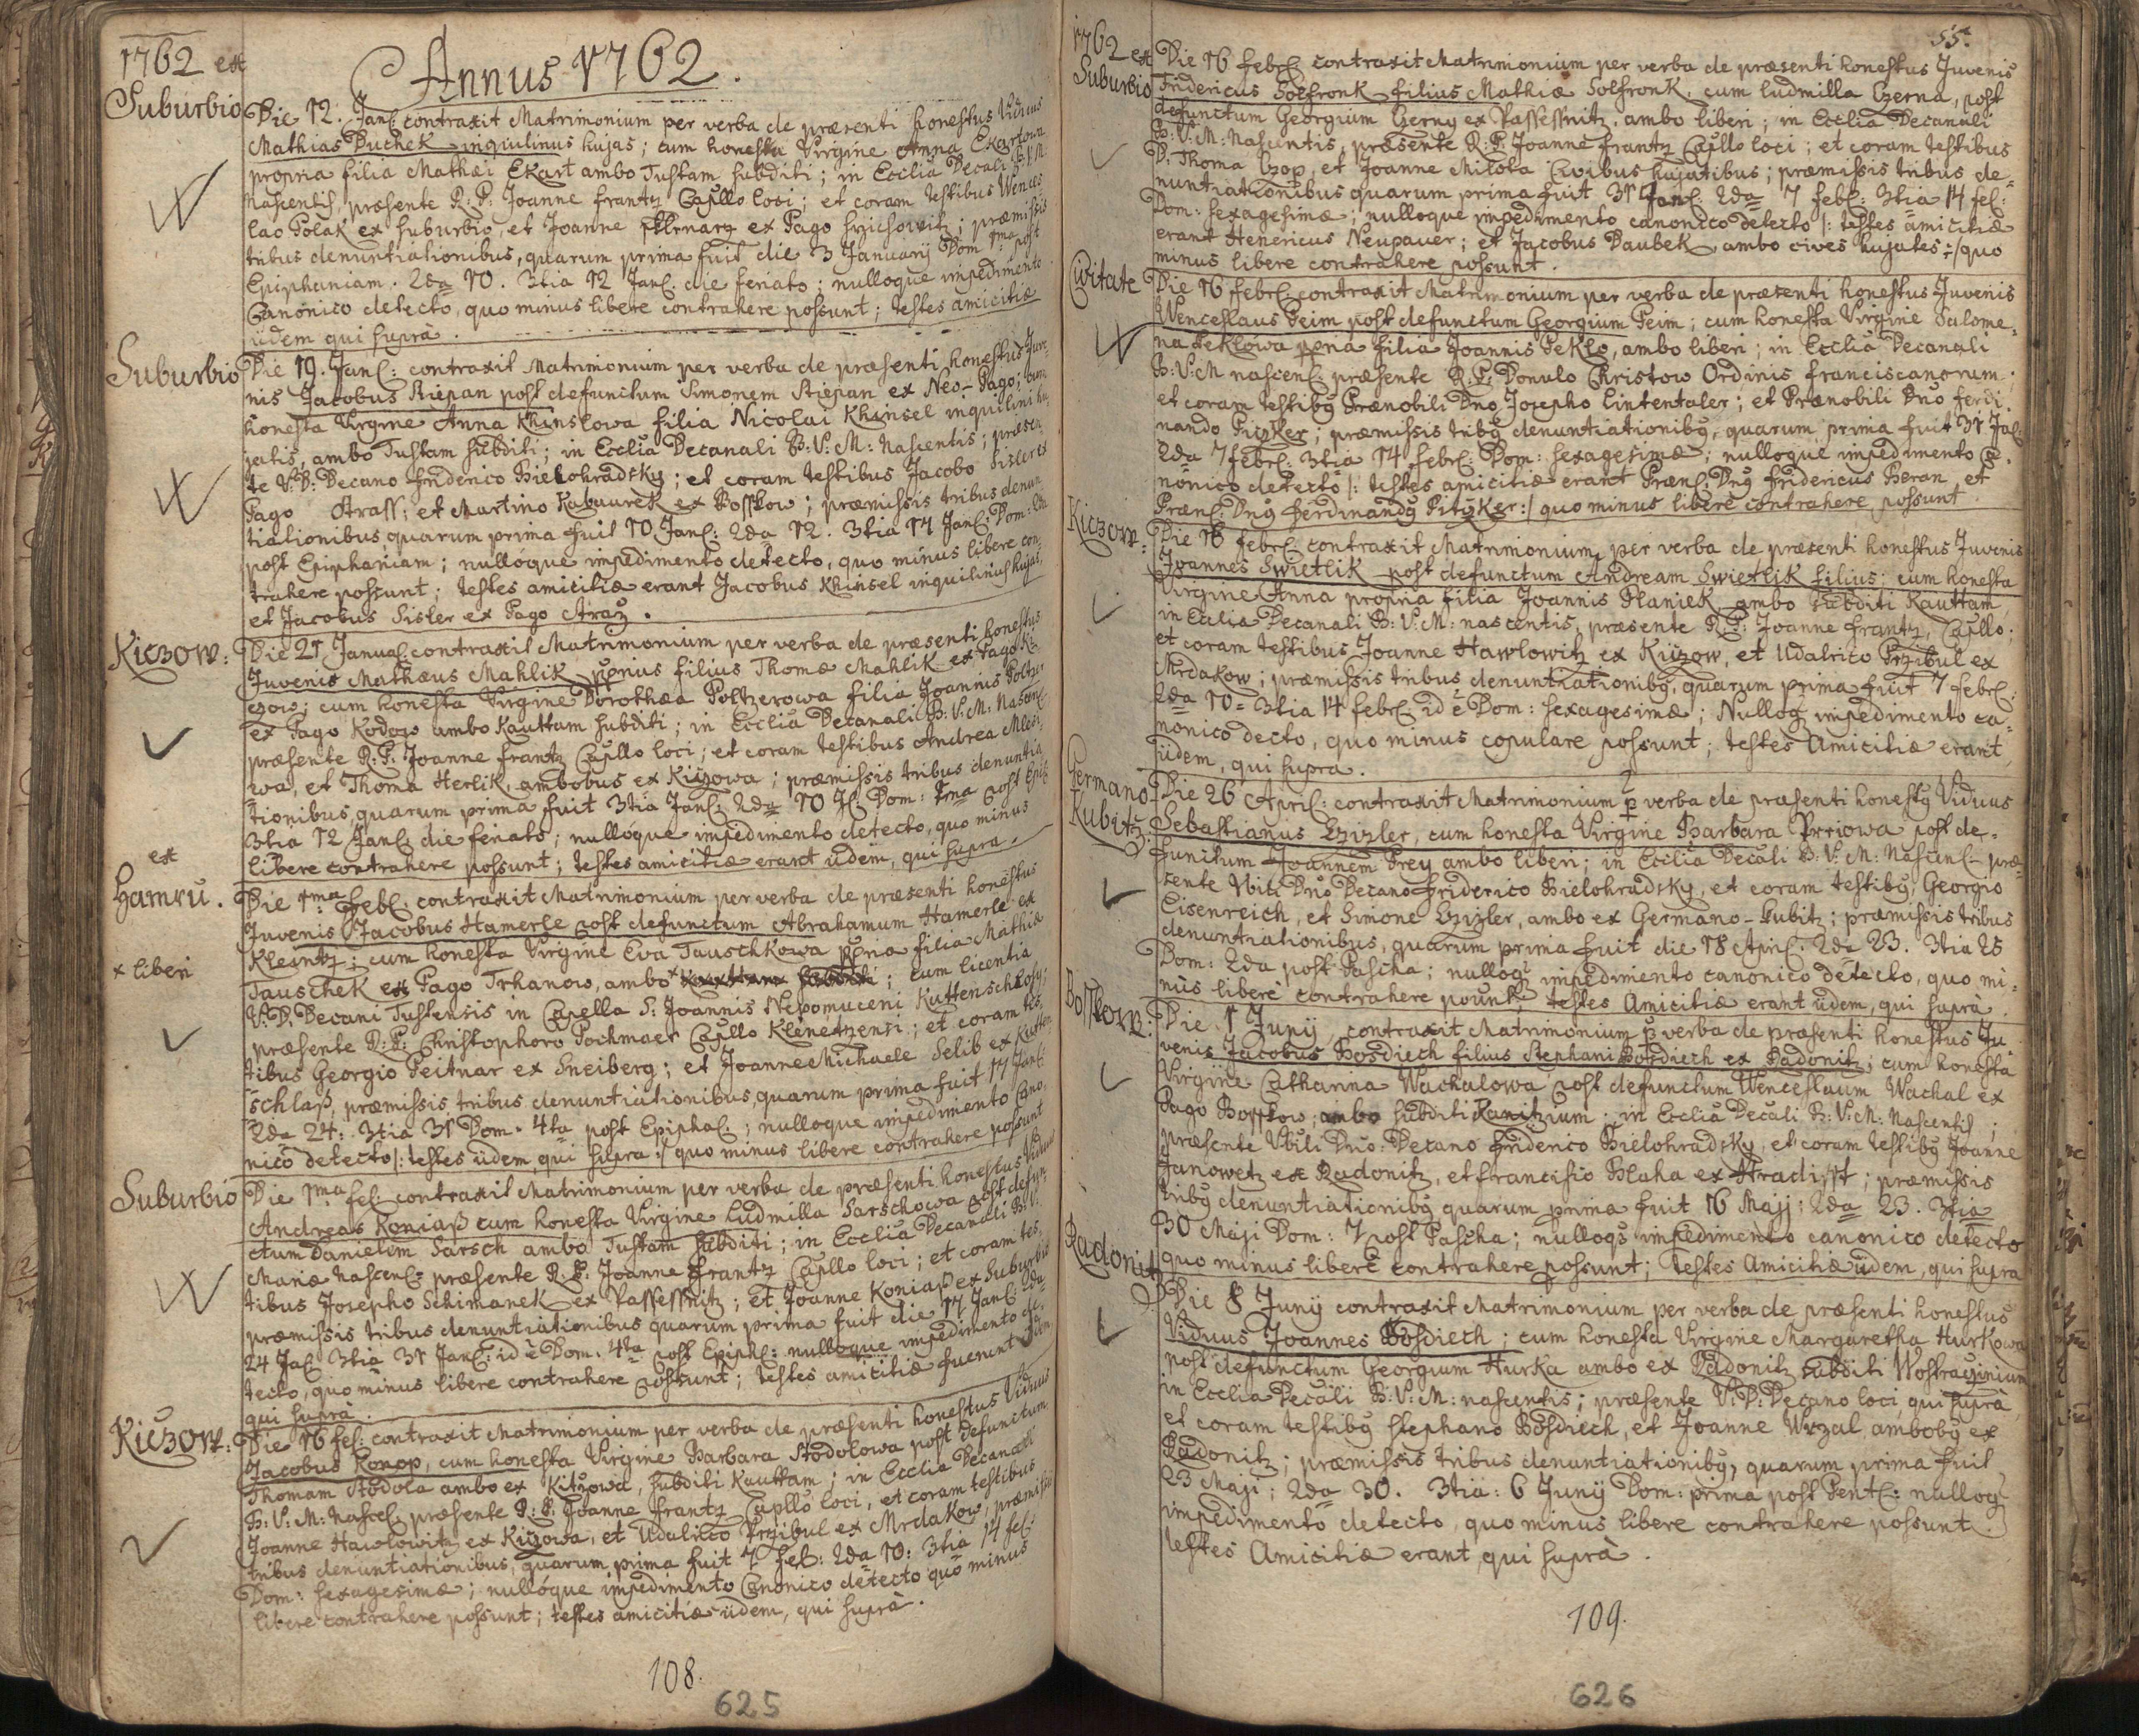 1762 ex
Suburbio
Annus 1762.
Die 12. Jan: contraxit Matrimonium per verba de præsenti honestus Viduus
Mathias Duchek inquilinus hujas; cum honesta Virgine Anna Ekartowa
propria filia Mathæi Ekart ambo Tustam subditi; in Ecclia Decali B.V.M.
Nascentis, præsente R: P: Joanne Frantz Capllo loci; et coram testibus Wences
lao Polak ex suburbio, et Joanne ex Pago ; præmissis
tribus denuntiationibus, quarum prima fuit die 3 Januarij Dom 1ma post
Epiphaniam. 2da 10. 3tia 12 Jan: die feriato; nulloque impedimento
Canonico detecto, quo minus libere contrahere possunt; testes amicitiæ
iidem qui suprà.
Suburbio
Die 19. Jan: contraxit Matrimonium per verba de præsenti honestus Juve:
nis Jacobus Stiepan post defunctum Simonem Stiepan ex Neo-Pago; cum
honesta Virgine Anna Khinslowa filia Nicolai Khinsel inquilini hu
jatis, ambo Tustam subditi; in Ecclia Decanali B: V: M: Nascentis; præsen
te V: D: Decano Friderico Bielohradsky; et coram testibus Jacobo Sisler ex
Pago Strass; et Martino Kabaurek ex Bosskow; præmissis tribus denun
tiationibus quarum prima fuit 10 Jan: 2da 12. 3tia 17 Jan: Dom: 2da
post Epiphaniam; nullóque impedimento detecto, quo minus libere con
trahere possunt; testes amicitiæ erant Jacobus Khinsel inquilinus hujas,
et Jacobus Sisler ex Pago Straz.
Kiczow:
Die 21 Janua: contraxit Matrimonium per verba de præsenti honestus
Juvenis Mathæus Mahlik pprius filius Thomæ Mahlik ex Pago Ki:
czow; cum honesta Virgine Dorothæa Poltzerowa filia Joannis Poltzer
ex Pago Kodow ambo Kauttam subditi; in Ecclia Decanali B: V: M: Nascen:
præsente R: P: Joanne Frantz Capllo loci; et coram testibus Andrea
wa, et Thoma Herlik, ambobus ex Kiczowa; præmissis tribus denuntia
tionibus, quarum prima fuit 3tia Jan: 2da 10 J: Dom: 1ma post Epi:
3tia 12 Jan: die feriato; nullóque impedimento detecto, quo minus
libere contrahere possunt; testes amicitiæ erant iidem, qui supra.
ex
Hamru.
Die 1ma Feb: contraxit Matrimonium per verba de præsenti honestus
Juvenis Jacobus Hamerle post defunctum Abrahamum Hamerle ex
Kleintz; cum honesta Virgine Eva Tauschkowa ppria filia Mathiæ
× liberi
Tauschek ex Pago Trhanow, ambo × Kauttam subditi; cum licentia
V: D: Decani Tustensis in Capella S: Joannis Nepomuceni Kuttenschlosz;
præsente R: P: Christophoro Pochmaer Capllo Klenetzensi; et coram tes,
tibus Georgio Peitnar ex Sneiberg; et Joanne Michaele Selib ex Kutten
schlasz, præmissis tribus denuntiationibus, quarum prima fuit 17 Jan:
2da 24: 3tia 31 Dom. 4ta post Epipha:; nulloque impedimento Cano:
nico detecto /: testes iidem qui supra :/ quo minus libere contrahere possunt
Suburbio
Die 1ma fe: contraxit Matrimonium per verba de præsenti honestus Viduus
Andreas Koniasz cum honesta Virgine Ludmilla Sarschowa post defun
ctum Danielem Sarsch ambo Tustam subditi; in Ecclia Decanali B: V:
Mariæ Nascen: præsente R. P: Joanne Frantz Capllo loci; et coram tes:
tibus Josepho Schimanek ex Passessnitz; et Joanne Koniasz ex Suburbio
præmissis tribus denuntiationibus quarum prima fuit die 17 Jan: 2da
24 Ja: 3tia 31 Jan: id è Dom. 4ta post Epiph: nulloque impedimento de:
tecto, quo minus libere contrahere possunt; testes amicitiæ fuerunt iidem
qui suprà.
Kiczow:
Die 16 fe: contraxit Matrimonium per verba de præsenti honestus Viduus
Jacobus Konop, cum honesta Virgine Barbara Stodolowa post defunctum
Thomam Stodola ambo ex Kitzowa, subditi Kauttam; in Ecclia Decanali
B: V: M: Nasce: præsente R: P: Joanne Frantz Capllo loci, et coram testibus
Joanne Hawlowitz ex Kiczowa, et Udalrico Przibul ex Mrdakow, præmissis
tribus denuntiationibus, quarum prima fuit 7 feb: 2da 10: 3tia 14 fe:
Dom: sexagesimæ; nullóque impedimento Canonico detecto quo minus
libere contrahere possunt; testes amicitiæ iidem, qui suprà.
108.
625
55.
1762 ex
Suburbio
Die 16 febr: contraxit Matrimonium per verba de præsenti honestus Juvenis
Fridericus Solfronk filius Mathiæ Solfronk. cum Ludmilla Czerna, post
defunctum Georgium Czerny ex Passessnitz. ambo liberi; in Ecclia Decanali
B: V: M: Nascentis, præsente R: P: Joanne Frantz Capllo loci; et coram testibus
D: Thoma Czop, et Joanne Milota Civibus hujatibus; præmissis tribus de:
nuntiationibus quarum prima fuit 31 Jan: 2da 7 feb: 3tia 14 fe:
Dom: sexagesimæ; nulloque impedimento canonico detecto /: testes amicitiæ
erant Henericus Neupauer; et Jacobus Daubek ambo cives hujates :/ quo
minus libere contrahere possunt.
Civitate
Die 16 febr: contraxit Matrimonium per verba de præsenti honestus Juvenis
Wenceslaus Peim post defunctum Georgium Peim; cum honesta Virgine Salome:
na Peklowa ppria filia Joannis Peklo, ambo liberi; in Ecclia Decanali
B: V: M nascen: præsente R: P: Donulo Christow Ordinis Franciscanorum;
et coram testibg Prænobili Dno Josepho Lintentaler; et Prænobili Dno Ferdi:
nando Pitzker; præmissis tribg denuntiationibg, quarum prima fuit 31 Ja:
2da 7 febr: 3tia 14 febr: Dom: sexagesimæ; nulloque impedimento Ca:
nonico detecto /: testes amicitiæ erant Præn: Dng Fridericus Beran et
Præn: Dng Ferdinandg Pitzker :/ quo minus libere contrahere possunt.
Kiczow:
Die 16 febr: contraxit Matrimonium per verba de præsenti honestus Juvenis
Joannes Swietlik post defunctum Andream Swietlik filius; cum honesta
Virgine Anna propria filia Joannis Planiek ambo subditi Kauttam,
in Ecclia Decanali B: V: M: nascentis, præsente R: P: Joanne Frantz, Capllo;
et coram testibus Joanne Hawlowitz ex Kiczow, et Udalrico Przibul ex
Mrdakow; præmissis tribus denuntiationibg, quarum prima fuit 7 febr:
2da 10 = 3tia 14 febr: id è Dom: sexagesimæ; Nulloq impedimento ca:
nonico decto, quo minus copulare possunt; testes Amicitiæ erant
iidem, qui supra.
Germano-
Kubitz
Die 26 April: contraxit Matrimonium p verba de præsenti honestg Viduus
Sebastianus Czizler, cum honesta Virgine Barbara Preiowa post de:
functum Joannem Prey ambo liberi; in Ecclia Decali B: V: M: Nascen: præ:
sente Vbili Dno Decano Friderico Bielohradsky, et coram testibg Georgio
Eisenreich, et Simone Czizler, ambo ex Germano-Kubitz; præmissis tribus
denuntiationibus, quarum prima fuit die 18 April: 2da 23. 3tia 25
Dom: 2da post Pascha; nulloq impedimento canonico detecto, quo mi:
nùs liberè contrahere possunt; testes Amicitiæ erant iidem, qui suprà.
Bosskow:
Die 1 Junij contraxit Matrimonium p verba de præsenti honestus Ju
venis Jacobus Bosdiech filius Stephani Bosdiech ex Radonitz; cum honesta
Virgine Catharina Wachalowa post defunctum Wenceslaum Wachal ex
Pago Bosskow; ambo subditi Kanitzium; in Ecclia Decali B: V: M: Nascentis;
præsente Vbili Dno: Decano Friderico Bielohradsky, et coram testibg Joanne
Janowetz ex Radonitz, et Francisco Blaha ex Hradisst; præmissis
tribg denuntiationibg quarum prima fuit 16 Maji: 2da 23. 3tia
30 Maji Dom: 7 post Pascha; nulloqs impedimento canonico detecto
quo minus liberè contrahere possunt; Testes Amicitiæ iidem, qui supra
Radonitz
Die 8 Junij contraxit Matrimonium per verba de præsenti honestus
Viduus Joannes Bosdiech; cum honesta Virgine Margaretha Hurkowa
post defunctum Georgium Hurka ambo ex Radonitz subditi Wostraczinium
in Ecclia Decali B: V: M: nascentis; præsente V: D: Decano loci, qui suprà
et coram testibg Stephano Bosdiech, et Joanne Wrzal ambobg ex
Radonitz; præmissis tribus denuntiationibg, quarum prima fuit
23 Maji; 2da 30. 3tia: 6 Junij Dom: prima post Pent: nulloq
impedimento detecto, quo minus libere contrahere possunt.
testes Amicitiæ erant qui suprà.
109.
626